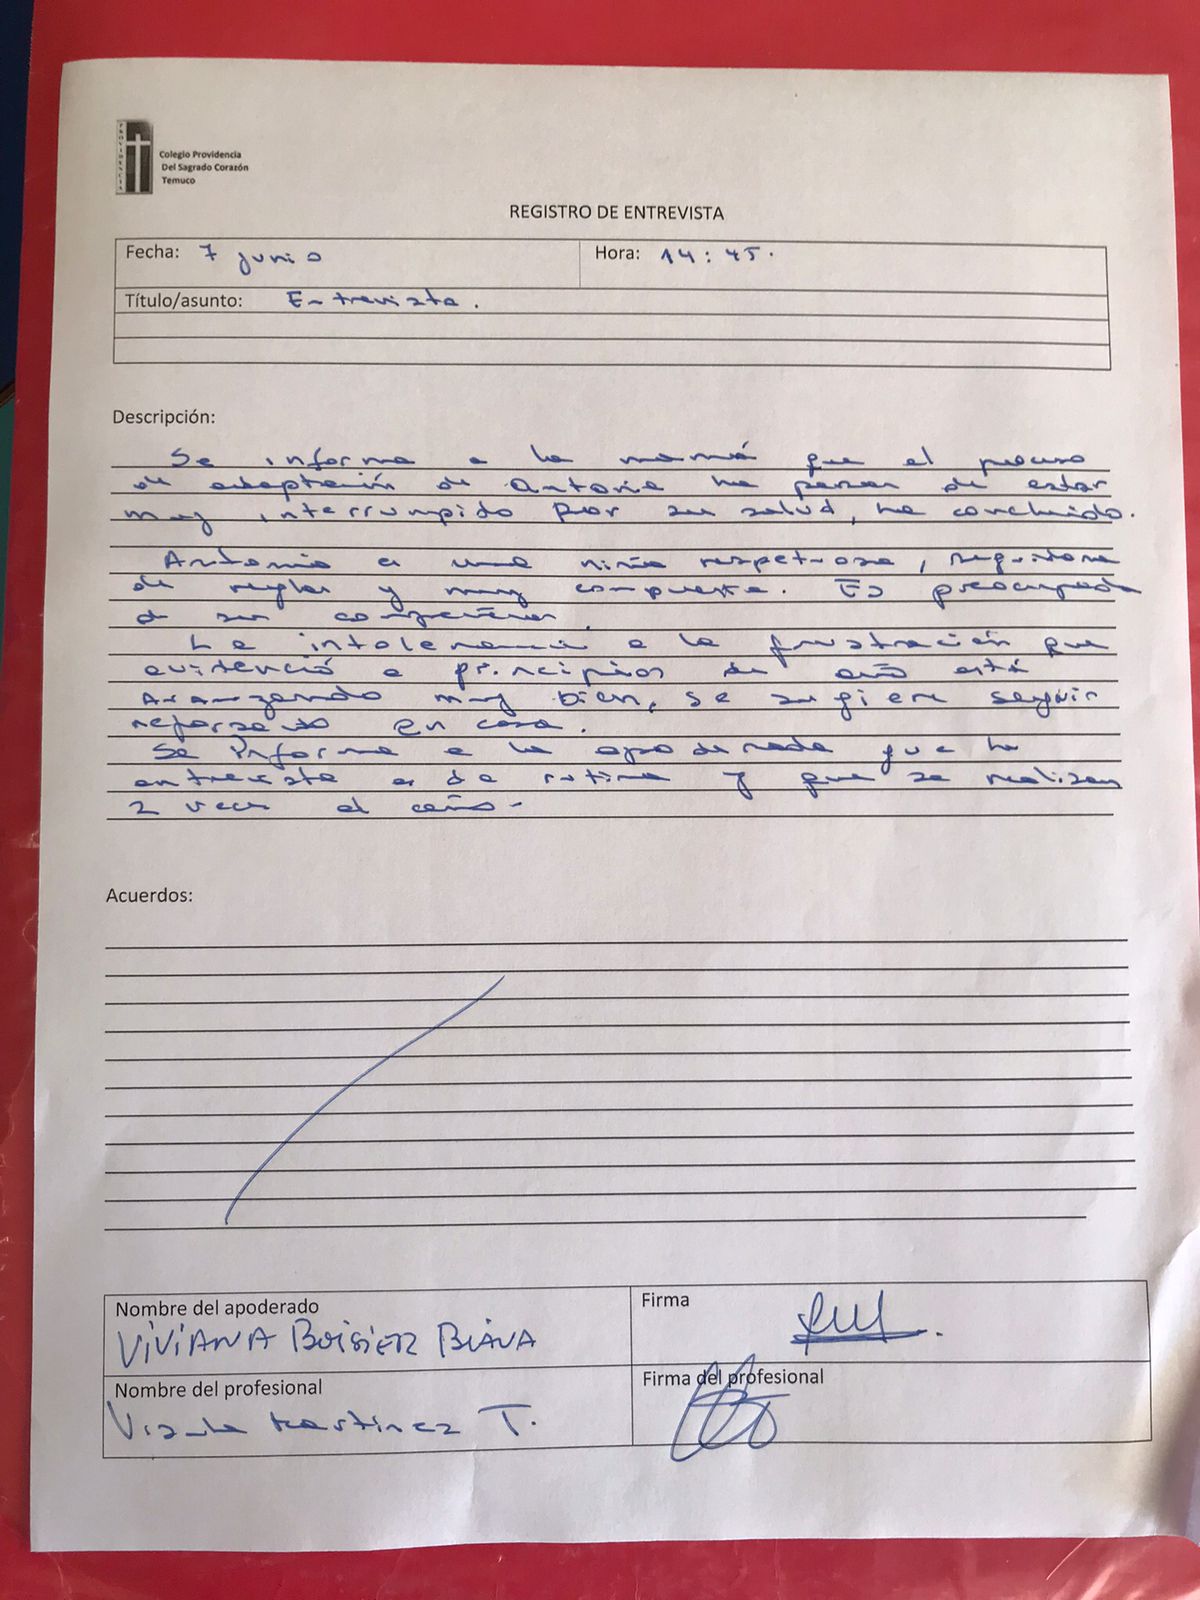 PROVIDENCIA
Colegio Providencia
Del Sagrado Corazón
Temuco
REGISTRO DE ENTREVISTA
Fecha: 7 junio
Hora: 14:45.
Título/asunto: Entrevista.
Descripción:
Se informa a la mamá que el proceso
de adaptación de Antonia ha pesar de estar
muy interrumpido por su salud, ha concluido.
Antonia es una niña respetuosa, seguidora
de reglas y muy compuesta. Es preocupada
de sus compañeros.
La intolerancia a la frustración que
evidenció a principios de año está
avanzando muy bien, se sugiere seguir
reforzando en casa.
Se informa a la apoderada que la
entrevista es de rutina y que se realizan
2 veces al año-
Acuerdos:
Nombre del apoderado
VIVIANA BOISIER
Firma
Nombre del profesional
Martínez T.
Firma del profesional